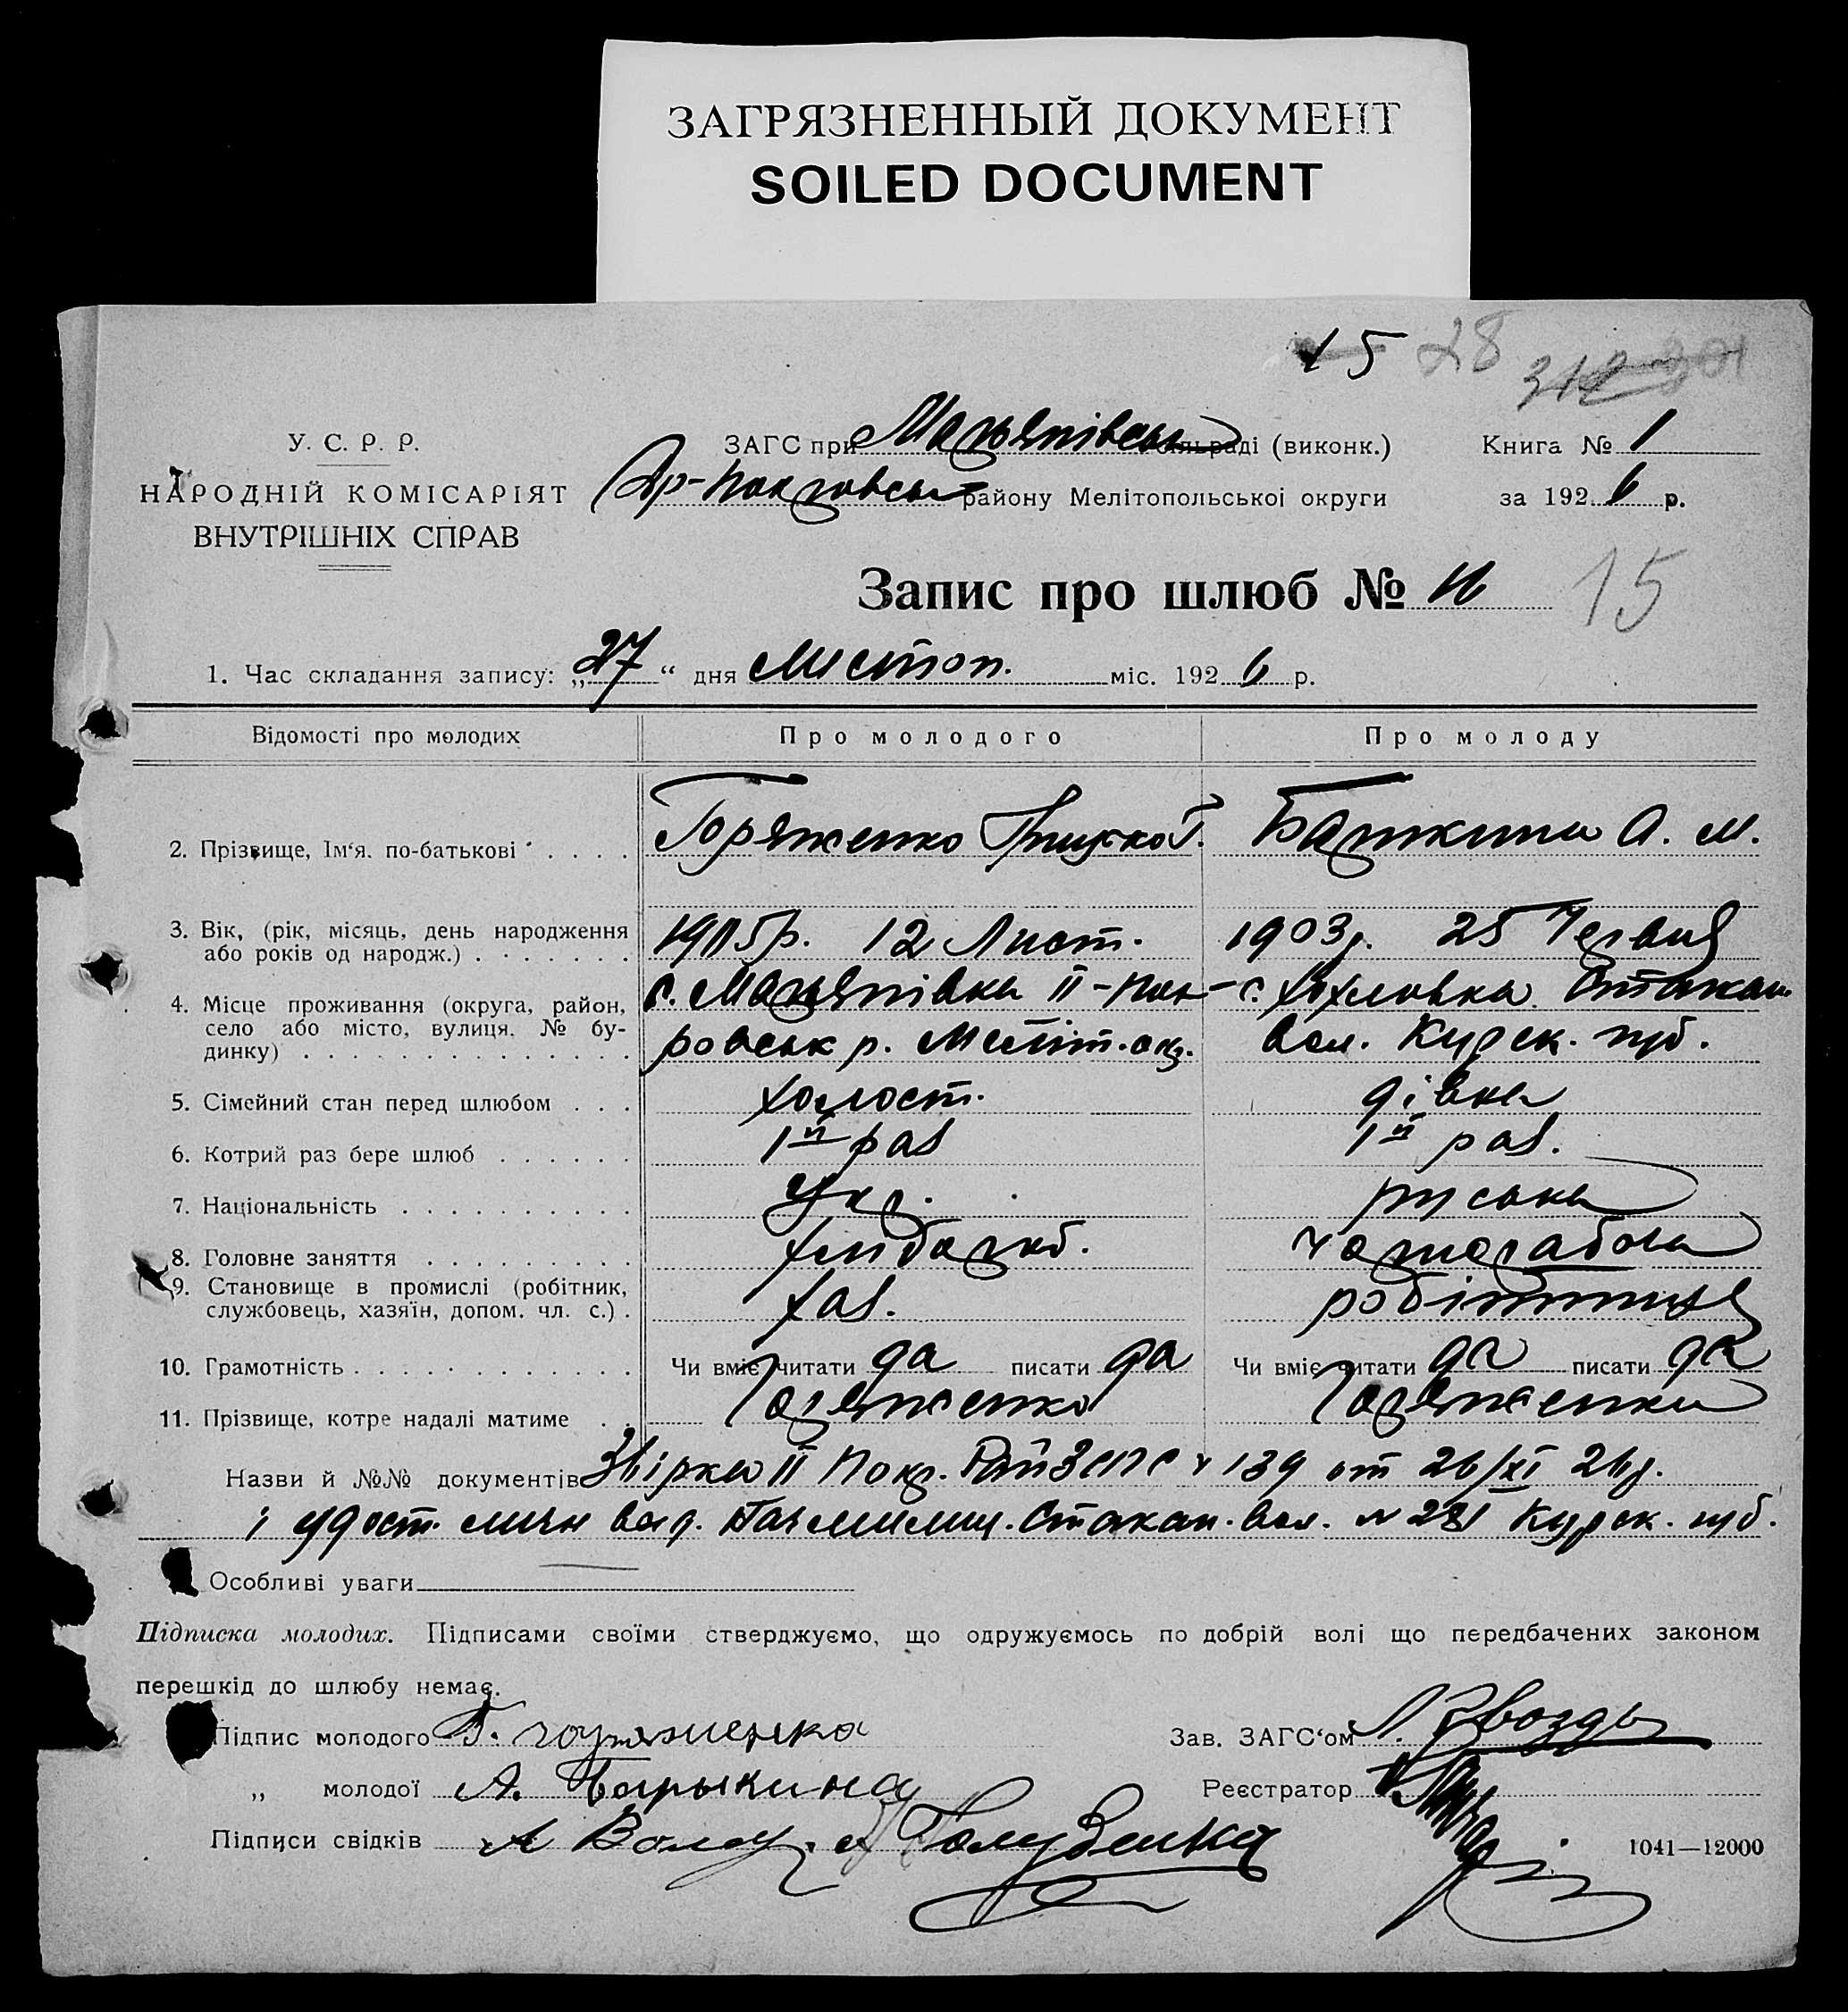 ЗАГРЯЗНЕННЫЙ ДОКУМЕНТ
SOILED DOCUMENT
15 28
У. С. Р. Р.
НАРОДНІЙ КОМІСАРІЯТ
ВНУТРІШНІХ СПРАВ
ЗАГС при раді (виконк.)
району Мелітопольської округи
Книга № 1
за 1926 р.
Запис про шлюб № 15
1. Час складання запису: „27“ дня Листоп. міс. 1926 р.
Відомості про молодих Про молодого Про молоду
2. Прізвище, Ім'я, по-батькові . . . . Горяженко Грицько Г. А. М.
3. Вік, (рік, місяць, день народження 12 Лист. 1903 р. 25 Червня
або років од народж.) . . . . . . .
4. Місце проживання (округа, район, с. II-Пок- с. Хохловка Стакан.
село або місто, вулиця, № бу- ровськ р. Меліт. окр. вол. Курск. губ.
динку) . . . . . . . . . . . . . .
5. Сімейний стан перед шлюбом . . . холост. дівка
6. Котрий раз бере шлюб . . . . . . 1й раз 1й раз.
7. Національність . . . . . . . . . . Укр. руська
8. Головне заняття . . . . . . . . . хлібороб. чорнораб
9. Становище в промислі (робітник, хаз. робітниця
службовець, хазяїн, допом. чл. с.) .
10. Грамотність . . . . . . . . . . . . Чи вміє читати да писати да Чи вміє читати да писати да
11. Прізвище, котре надалі матиме . . Горяженко Горяженко
Назви й №№ документів II Покр. 139 от 26/XI 26 р.
і удост. личн выд. Стакан. вол. № 231 Курск. губ.
Особливі уваги
Підписка молодих. Підписами своїми стверджуємо, що одружуємось по добрій волі що передбачених законом
перешкід до шлюбу немає.
Підпис молодого Г. горяженко Зав. ЗАГС'ом Л. Гвоздь
„ молодої А. Барыкина Реєстратор
Підписи свідків А
1041—12000